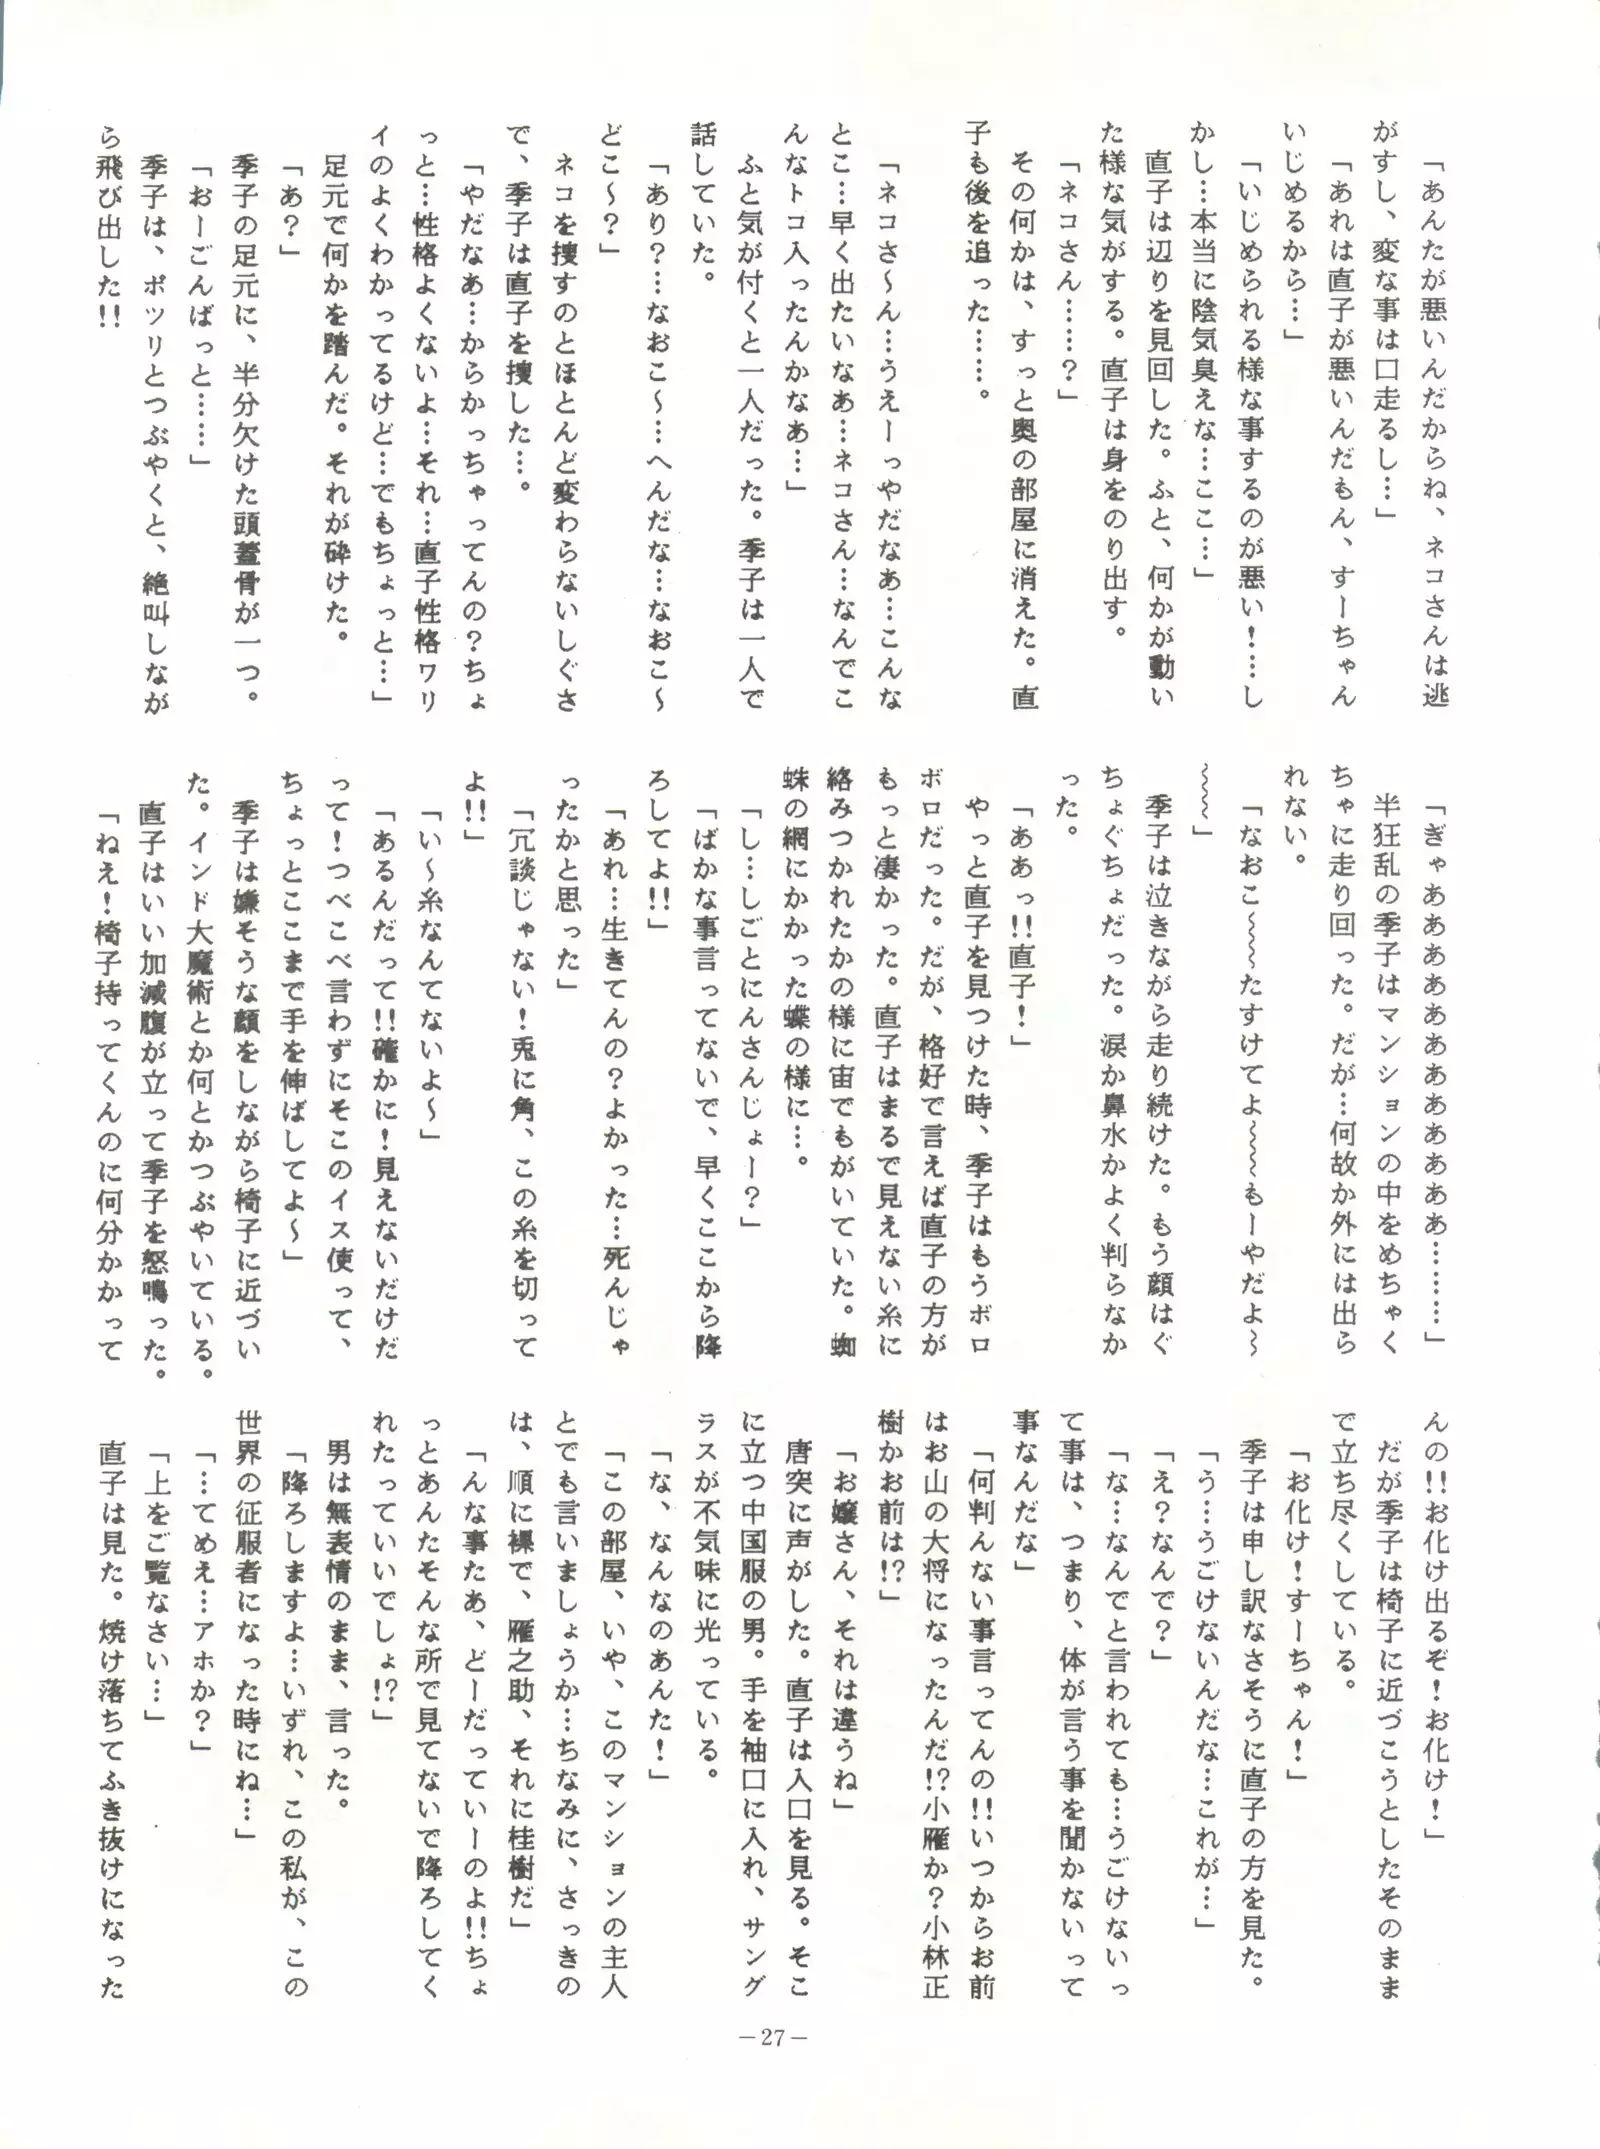 「あんたが悪いんだからね、ネコさんは逃
がすし、変な事は口走るし…」
「あれは直子が悪いんだもん、すーちゃん
いじめるから…」
「いじめられる様な事するのが悪い！…し
かし…本当に陰気臭えな…ここ…」
直子は辺りを見回した。ふと、何かが動い
た様な気がする。直子は身をのり出す。
「ネコさん……？」
その何かは、すっと奥の部屋に消えた。直
子も後を追った……。
「ネコさ～ん…うえーっやだなあ…こんな
とこ…早く出たいなあ…ネコさん…なんでこ
んなトコ入ったんかなあ…」
ふと気が付くと一人だった。季子は一人で
話していた。
「あり？…なおこ～…へんだな…なおこ～
どこ～？」
ネコを捜すのとほとんど変わらないしぐさ
で、季子は直子を捜した…。
「やだなあ…からかっちゃってんの？ちょ
っと…性格よくないよ…それ…直子性格ワリ
イのよくわかってるけど…でもちょっと…」
足元で何かを踏んだ。それが砕けた。
「あ？」
季子の足元に、半分欠けた頭蓋骨が一つ。
「おーごんばっと……」
季子は、ポツリとつぶやくと、絶叫しなが
ら飛び出した!!
「ぎゃああああああああああああ………」
半狂乱の季子はマンションの中をめちゃく
ちゃに走り回った。だが…何故か外には出ら
れない。
「なおこ～～～たすけてよ～～～もーやだよ～
～～～」
季子は泣きながら走り続けた。もう顔はぐ
ちょぐちょだった。涙か鼻水かよく判らなか
った。
「ああっ!!直子！」
やっと直子を見つけた時、季子はもうボロ
ボロだった。だが、格好で言えば直子の方が
もっと凄かった。直子はまるで見えない糸に
絡みつかれたかの様に宙でもがいていた。蜘
蛛の網にかかった蝶の様に…。
「し…しごとにんさんじょー？」
「ばかな事言ってないで、早くここから降
ろしてよ!!」
「あれ…生きてんの？よかった…死んじゃ
ったかと思った」
「冗談じゃない！兎に角、この糸を切って
よ!!」
「い～糸なんてないよ～」
「あるんだって!!確かに！見えないだけだ
って！つべこべ言わずにそこのイス使って、
ちょっとここまで手を伸ばしてよ～」
季子は嫌そうな顔をしながら椅子に近づい
た。インド大魔術とか何とかつぶやいている。
直子はいい加減腹が立って季子を怒鳴った。
「ねえ！椅子持ってくんのに何分かかって
んの!!お化け出るぞ！お化け！」
だが季子は椅子に近づこうとしたそのまま
で立ち尽くしている。
「お化け！すーちゃん！」
季子は申し訳なさそうに直子の方を見た。
「う…うごけないんだな…これが…」
「え？なんで？」
「な…なんでと言われても…うごけないっ
て事は、つまり、体が言う事を聞かないって
事なんだな」
「何判んない事言ってんの!!いつからお前
はお山の大将になったんだ!?小雁か？小林正
樹かお前は!?」
「お嬢さん、それは違うね」
唐突に声がした。直子は入口を見る。そこ
に立つ中国服の男。手を袖口に入れ、サング
ラスが不気味に光っている。
「な、なんなのあんた！」
「この部屋、いや、このマンションの主人
とでも言いましょうか…ちなみに、さっきの
は、順に裸で、雁之助、それに桂樹だ」
「んな事たあ、どーだっていーのよ!!ちょ
っとあんたそんな所で見てないで降ろしてく
れたっていいでしょ!?」
男は無表情のまま、言った。
「降ろしますよ…いずれ、この私が、この
世界の征服者になった時にね…」
「…てめえ…アホか？」
「上をご覧なさい…」
直子は見た。焼け落ちてふき抜けになった
―27―